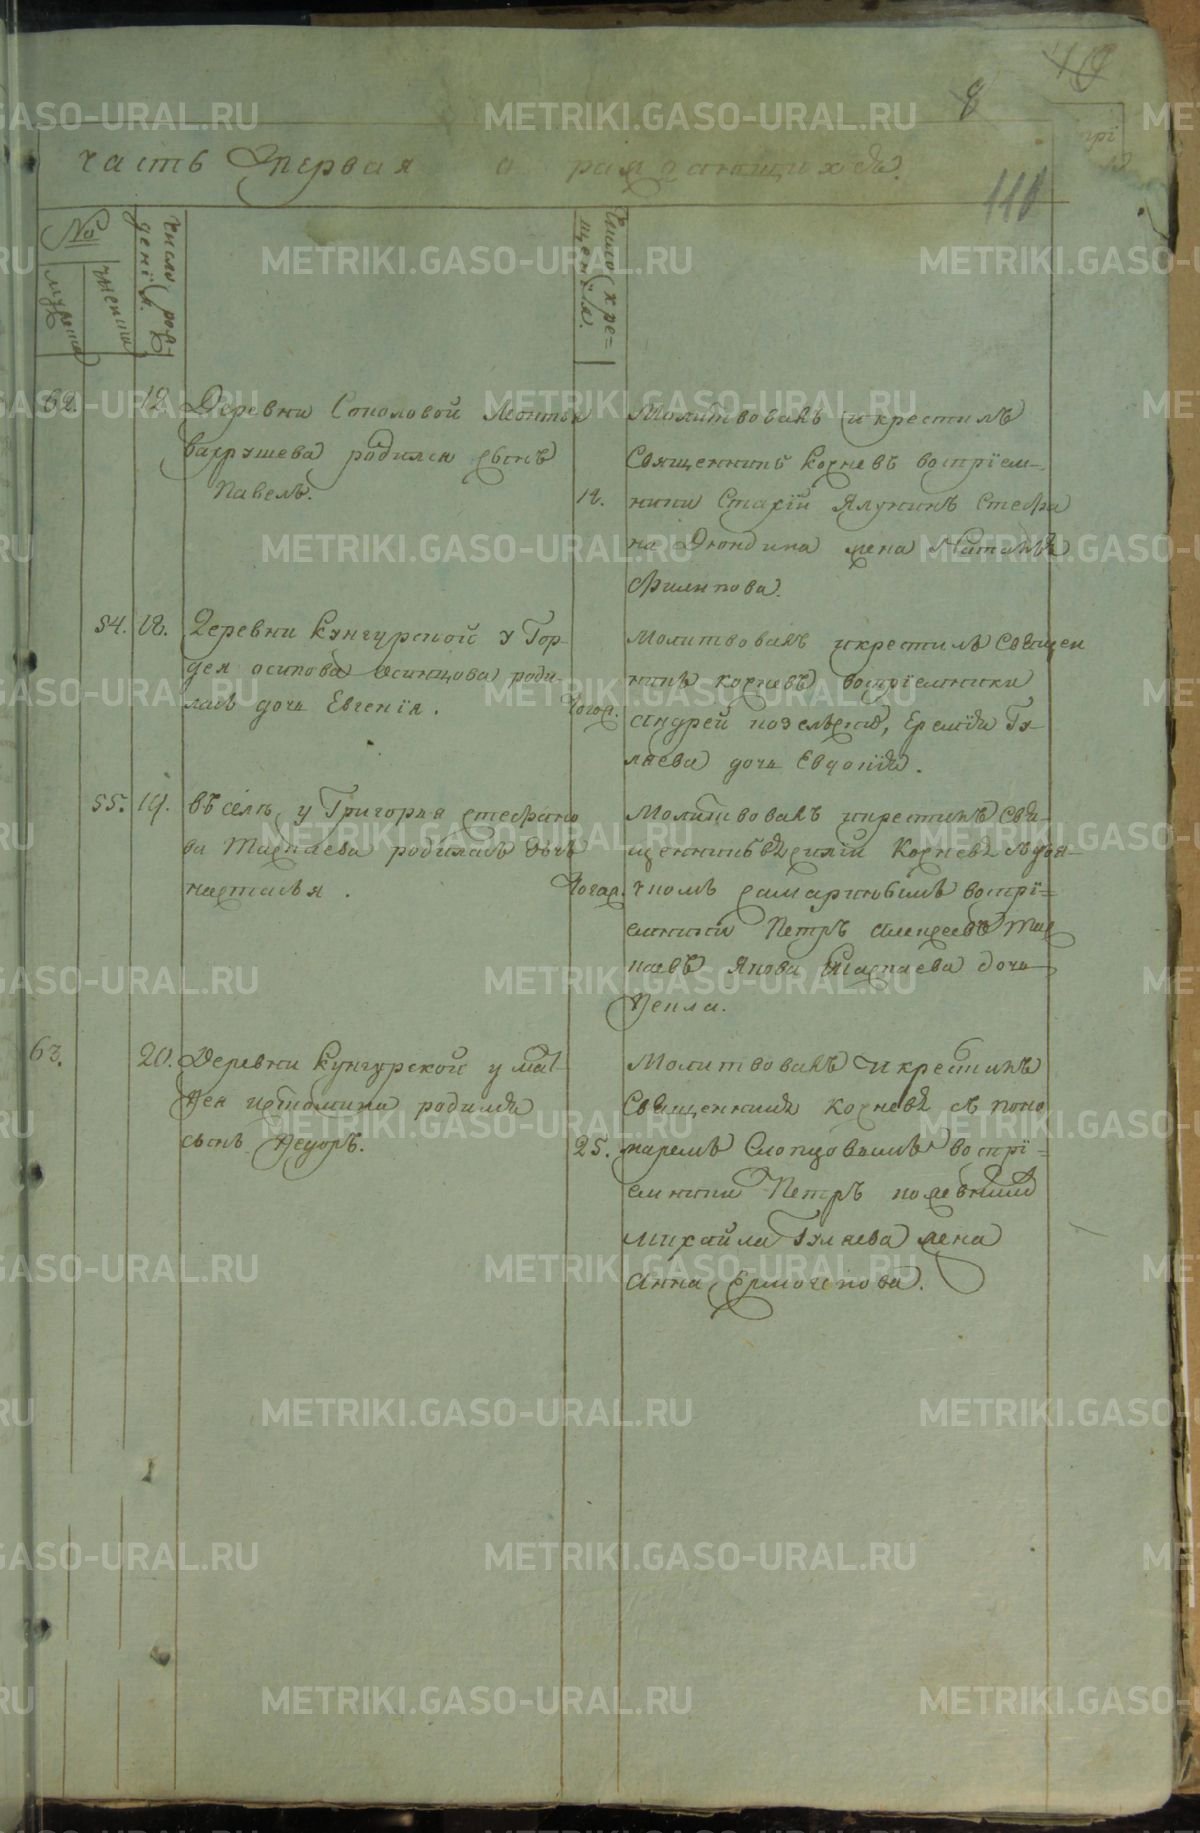 8
110
часть первая о раждающихся.
№
мужеска
женска
число рож-
денїя.
Число кре=
щенїя.
62.
12
Деревни Соколовой Леонтья
Вахрушева родился сынъ
Павелъ.
12.
Молитвовалъ и крестилъ
Священникъ Корневъ воспрїем-
ники Стахїй Ялунинъ Стефа
на жена Наталья
Филипова.
54.
12.
Деревни Кунгурской у Гор-
дея осипова Осинцова роди-
лась дочь Евгенїя.
тогож.
Молитвовалъ и крестилъ Священ
никъ Корневъ воспрїемники
Андрей Еремѣя Гу-
ляева дочь Евдокїя.
55.
14.
въ селѣ, у Григорья стефано
ва родилась дочь
настасья.
тогож.
Молитвовалъ и крестилъ Свя-
щенникъ Корневъ съ дья-
чкомъ самаринымъ воспрї=
емники Петръ Алексеевъ
Якова дочь
Фекла.
63.
20.
Деревни Кунгурской у мат-
фея истомина родился
сынъ Федоръ.
25.
Молитвовалъ и крестилъ
Священникъ Корневъ съ поно
маремъ Слопцовымъ воспрї-
емники Петръ
михайла Гуляева жена
Анна
METRIKI.GASO-URAL.RU